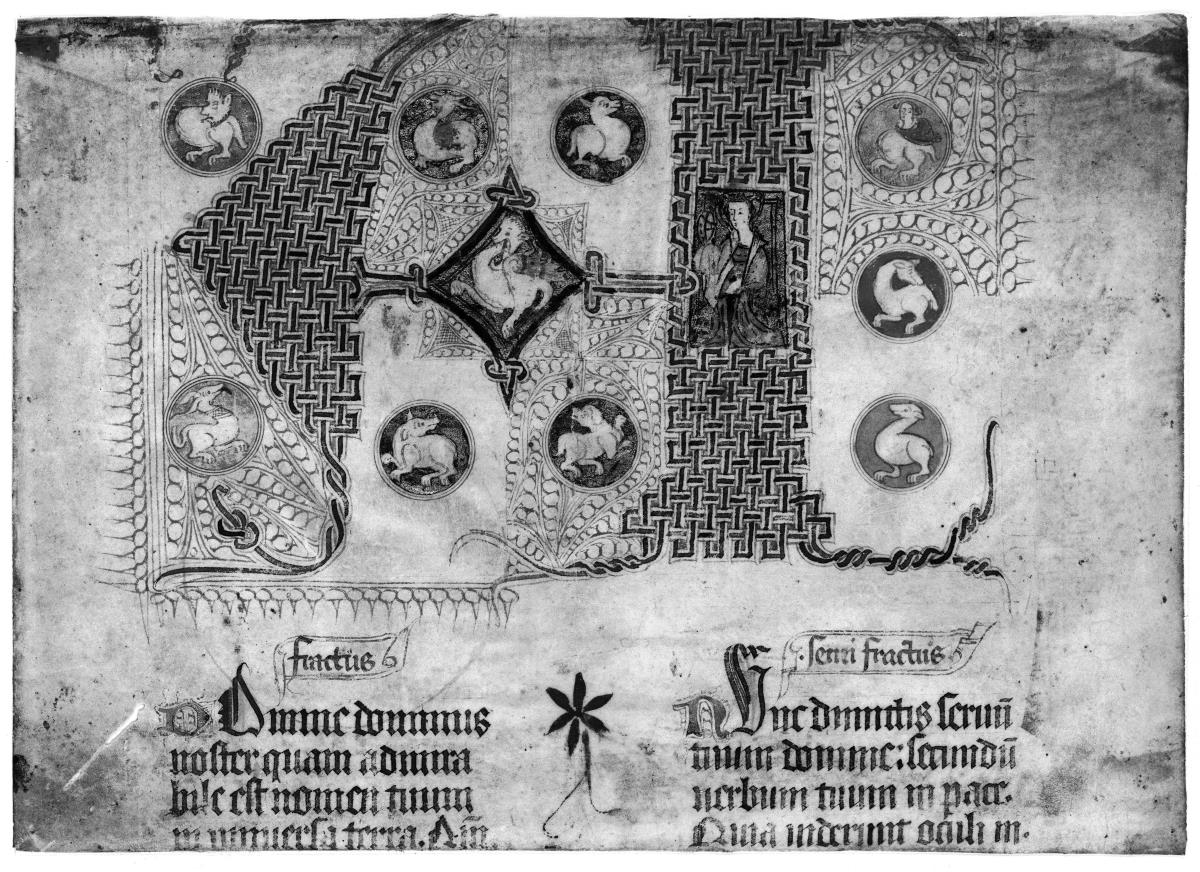 fractus
Domine dominus
noster quam admira
bile est nomen tuum
in universa terra. Am̄.
semi fractus
Nunc dimittis seruū
tuum domine: secundū
uerbum tuum in pace.
Quia uiderunt oculi m.